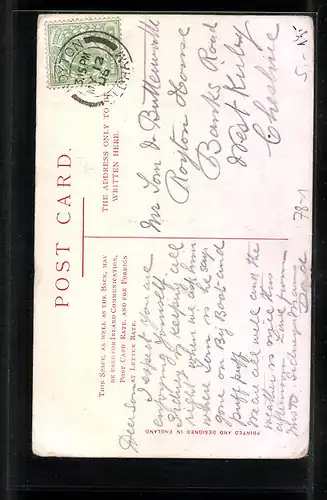 POST CARD.
THIS SPACE, AS WELL AS THE BACK, MAY
BE USED FOR INLAND COMMUNICATION,
POST CARD RATE, AND FOR FOREIGN
AT LETTER RATE.
THE ADDRESS ONLY TO BE
WRITTEN HERE.
ROYTON
3.15 PM
OLDHAM
Mr Tom D Butterworth
Royton House
Banks Road
West Kirby
Cheshire
Dear Son
I expect you are
enjoying yourself
riding & keeping all
right when we ask him
where Tom is he says
gone on Big Boat and
puff puff
We are all well and the
weather is nice this
afternoon
Dad
PRINTED AND DESIGNED IN ENGLAND
78-1
5.-